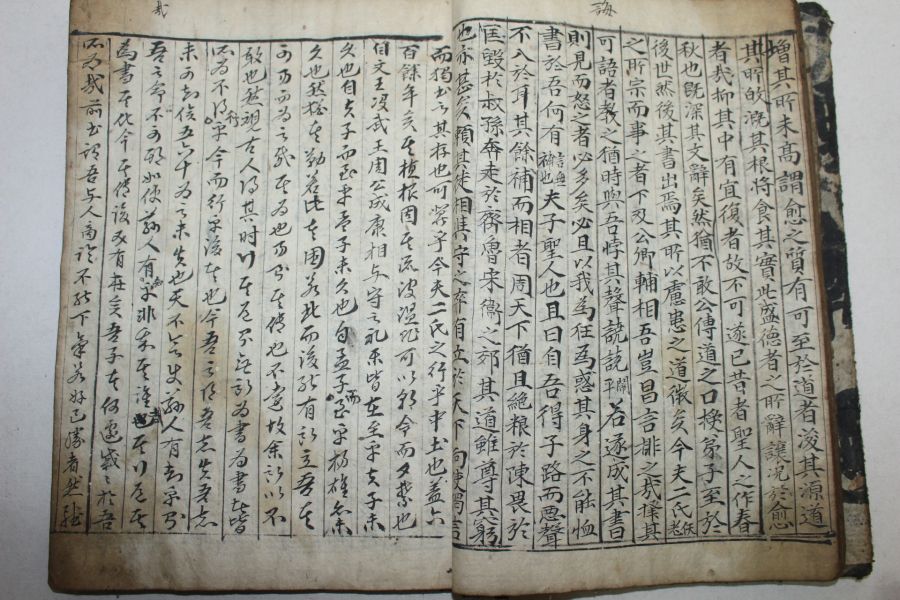 誨
增其所未高謂愈之質有可至於道者浚其源道
其所歸溉其根將食其實此盛德者之所辭讓況於愈
者哉抑其中有宜復者故不可遂已昔者聖人之作春
秋也旣深其文辭矣然猶不敢公傳道之口授弟子至於
後世然後其書出焉其所以慮患之道微矣今夫二氏佚老
之所宗而事之者下及公卿輔相吾豈昌言排之哉擇其
可語者敎之猶時與吾悖其聲譊譊若遂成其書
則見而怒之者必多矣必且以我爲狂爲惑其身之不能恤
書於吾何有言無補也夫子聖人也且曰自吾得子路而惡聲
不入於耳其餘補而相者周天下猶且絶粮於陳畏於
匡毀於叔孫奔走於齊魯宋衞之郊其道雖尊其窮
也亦甚矣賴其徒相與守之卒有立於天下向使獨言
哉
而獨書之其存也可冀乎今夫二氏之行乎中土也盖六
百餘年矣其植根固其流波漫非可以朝令而夕禁也
自文王沒武王周公成康相与守之礼樂皆在至乎夫子未
久也自夫子而至乎孟子未久也自孟子而至乎楊雄亦未
久也然猶其勤若此其困若此而後能有所立吾其
可易而爲之哉其爲也易則其傳也不遠故余所以不
敢也然觀古人得其時行其道則無所爲書爲書者皆
所爲不得行乎今而行乎後世也今吾之得吾志失吾志
未可知俟五六十爲之未失也天不欲使茲人有知乎則
吾之命不可期如使茲人有知乎非我其誰哉其行道其
爲書其化今其傳後必有在矣吾子其何遽戚々於吾
所爲哉前書謂吾与人商論不能下氣若好已勝者然雖